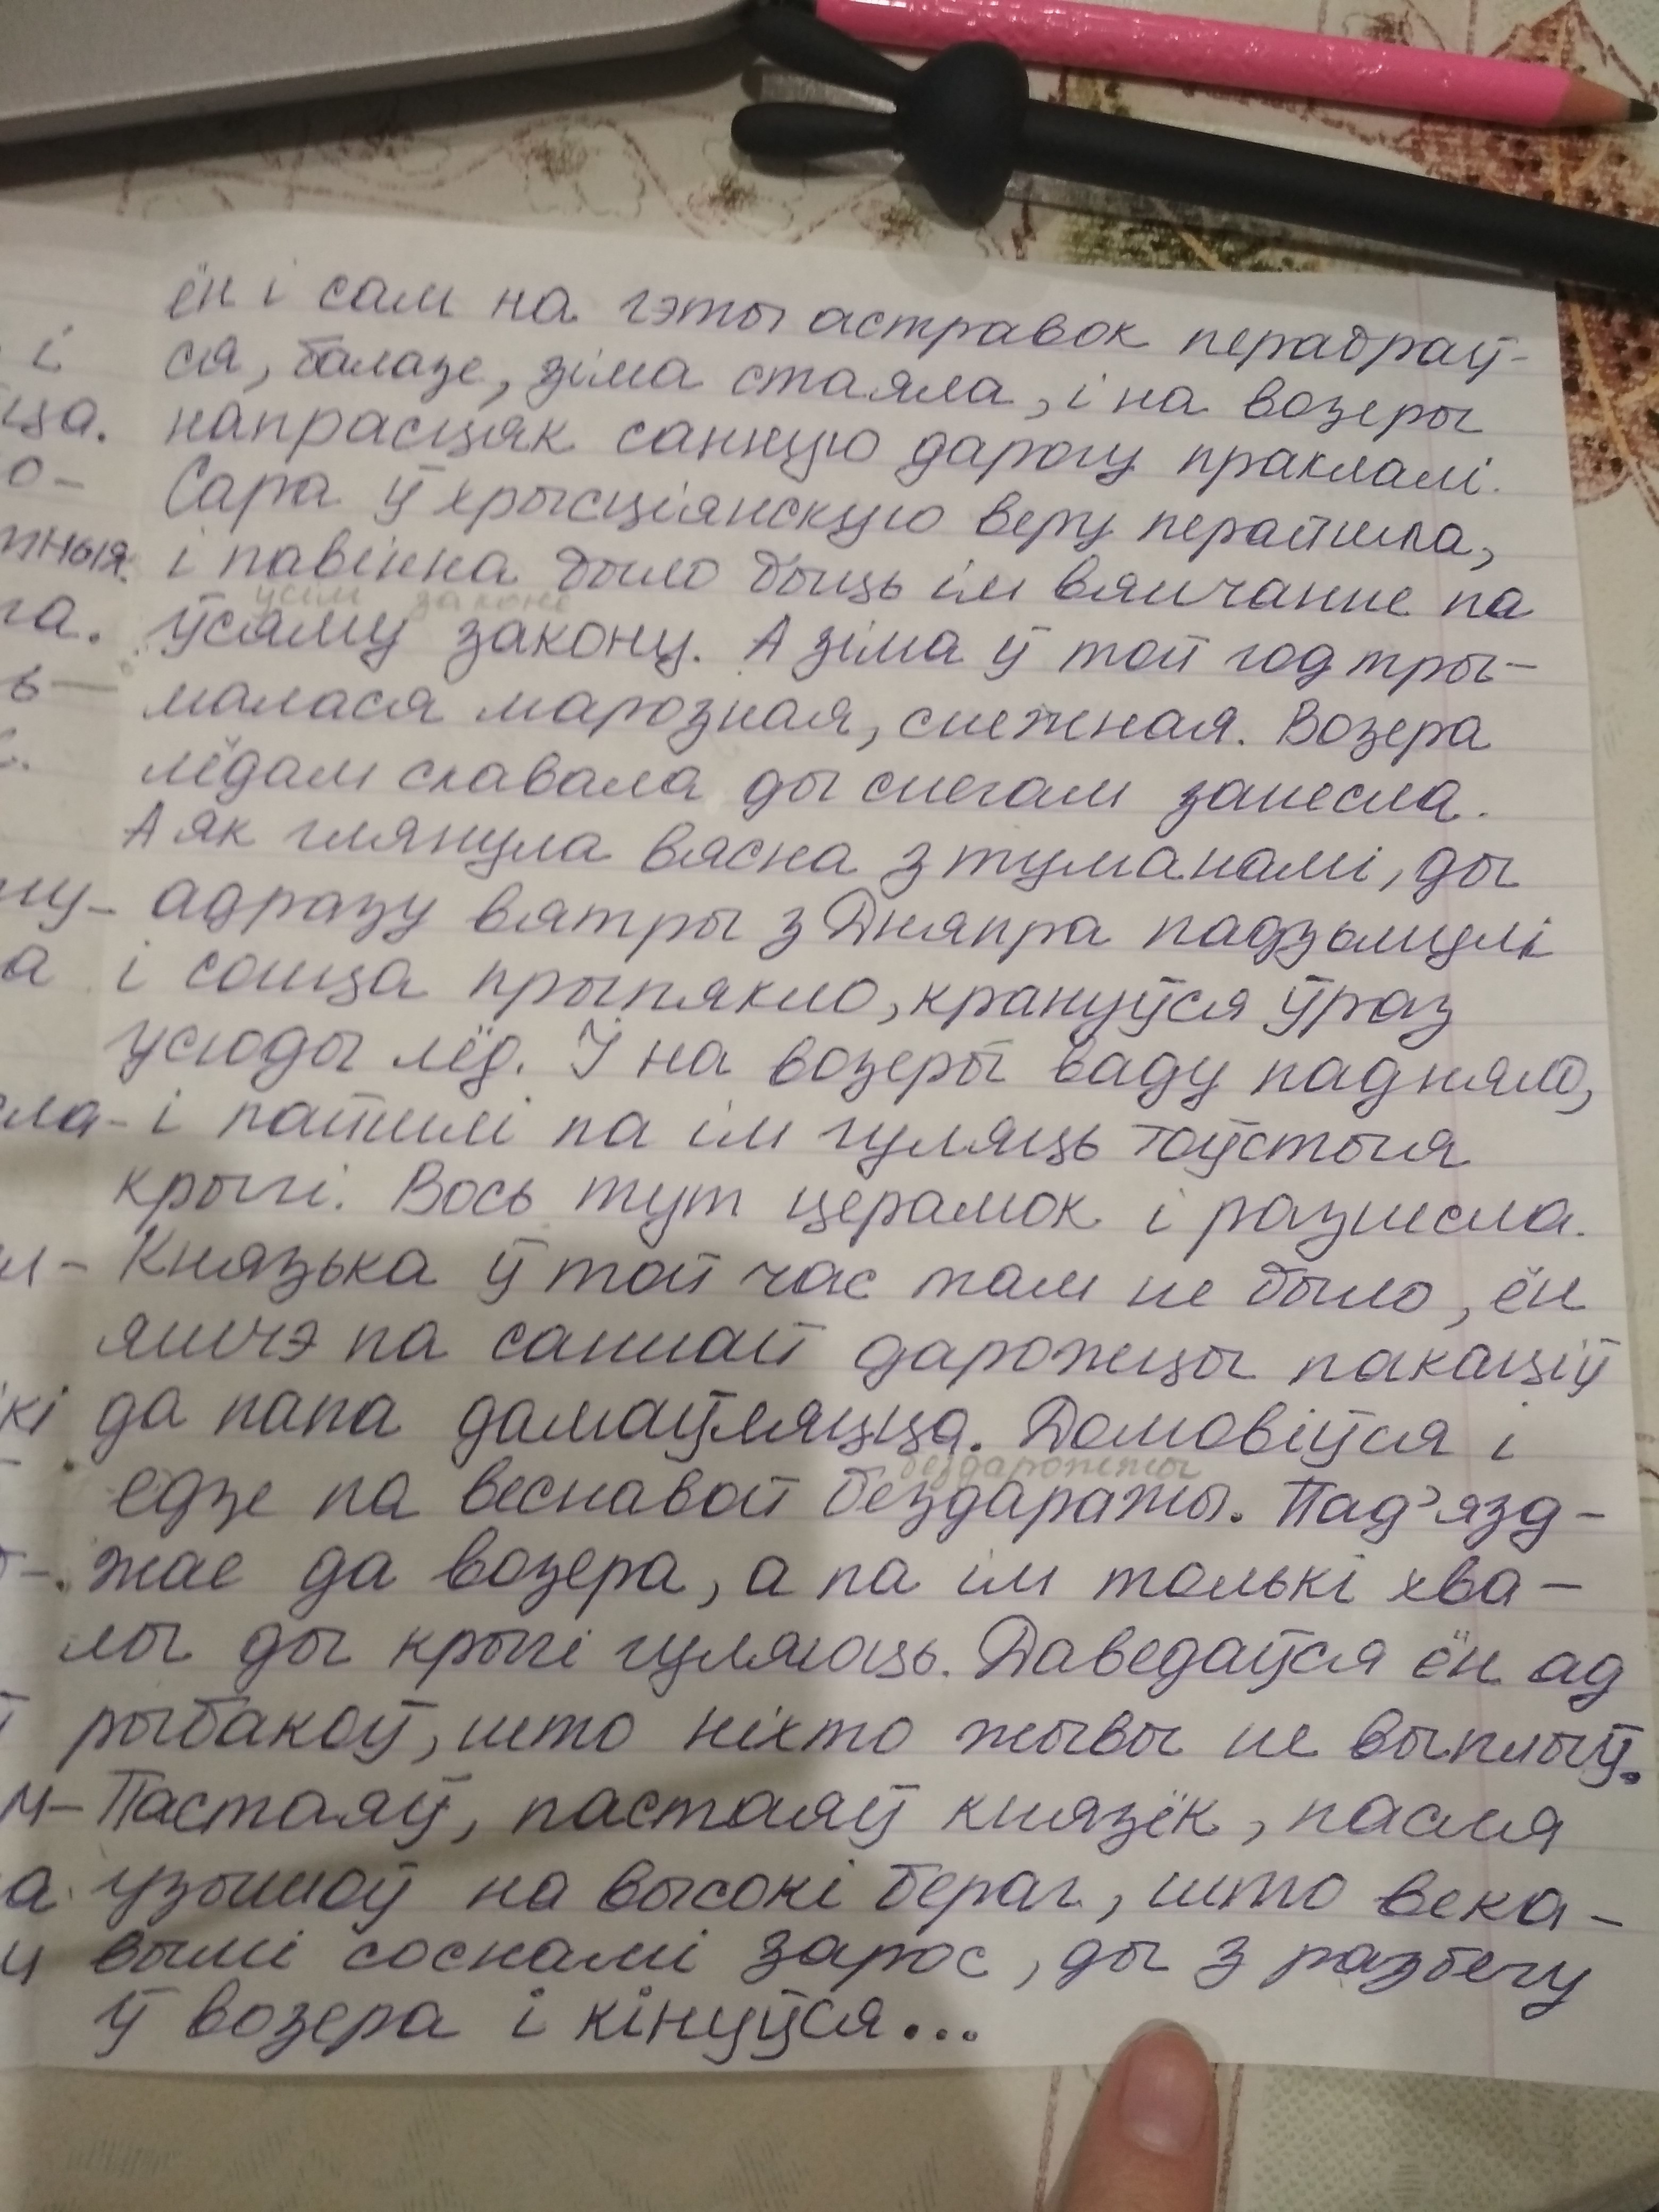 ён і сам на гэты астравок перабраў-
і ся, балазе, зіма стаяла, і на возеры
ца. напрасцяк санную дарогу праклалі.
о- Сара ў хрысціянскую веру перайшла,
жныя. і павінна было быць ім вянчанне па
усім законе
га. ўсяму закону. А зіма ў той год тры-
ь- малася марозная, снежная. Возера
лёдам скавала ды снегам занесла.
А як глянула вясна з туманамі, ды
ну- адразу вятры з Дняпра падзьмулі
а і сонца прыпякло, крануўся ўраз
усюды лёд. І на возеры ваду падняло,
сла- і пайшлі па ім гуляць тоўстыя
крыгі. Вось тут церамок і разнесла.
Князька ў той час там не было, ён
яшчэ па саннай дарожцы пакаціў
кі да папа дамаўляцца. Домовіўся і
бездарожжы
едзе па веснавой бездаражы. Пад'язд-
жае да возера, а па ім толькі хва-
лы ды крыгі гуляюць. Даведаўся ён ад
рыбакоў, што ніхто жывы не выплыў.
м- Пастаяў, пастаяў князёк, пасля
а узышоў на высокі бераг, што века-
вымі соснамі зарос, ды з разбегу
ў возера і кінуўся...